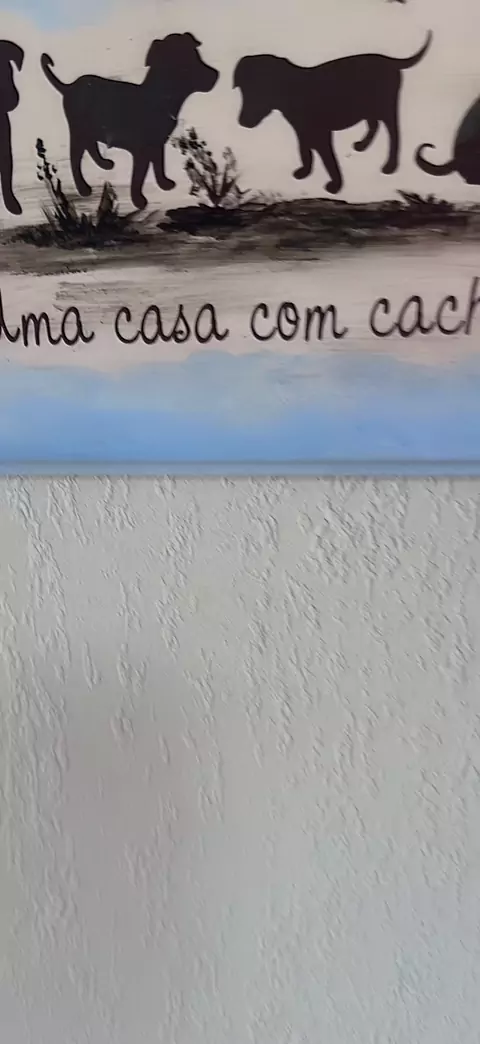 Uma casa com cach